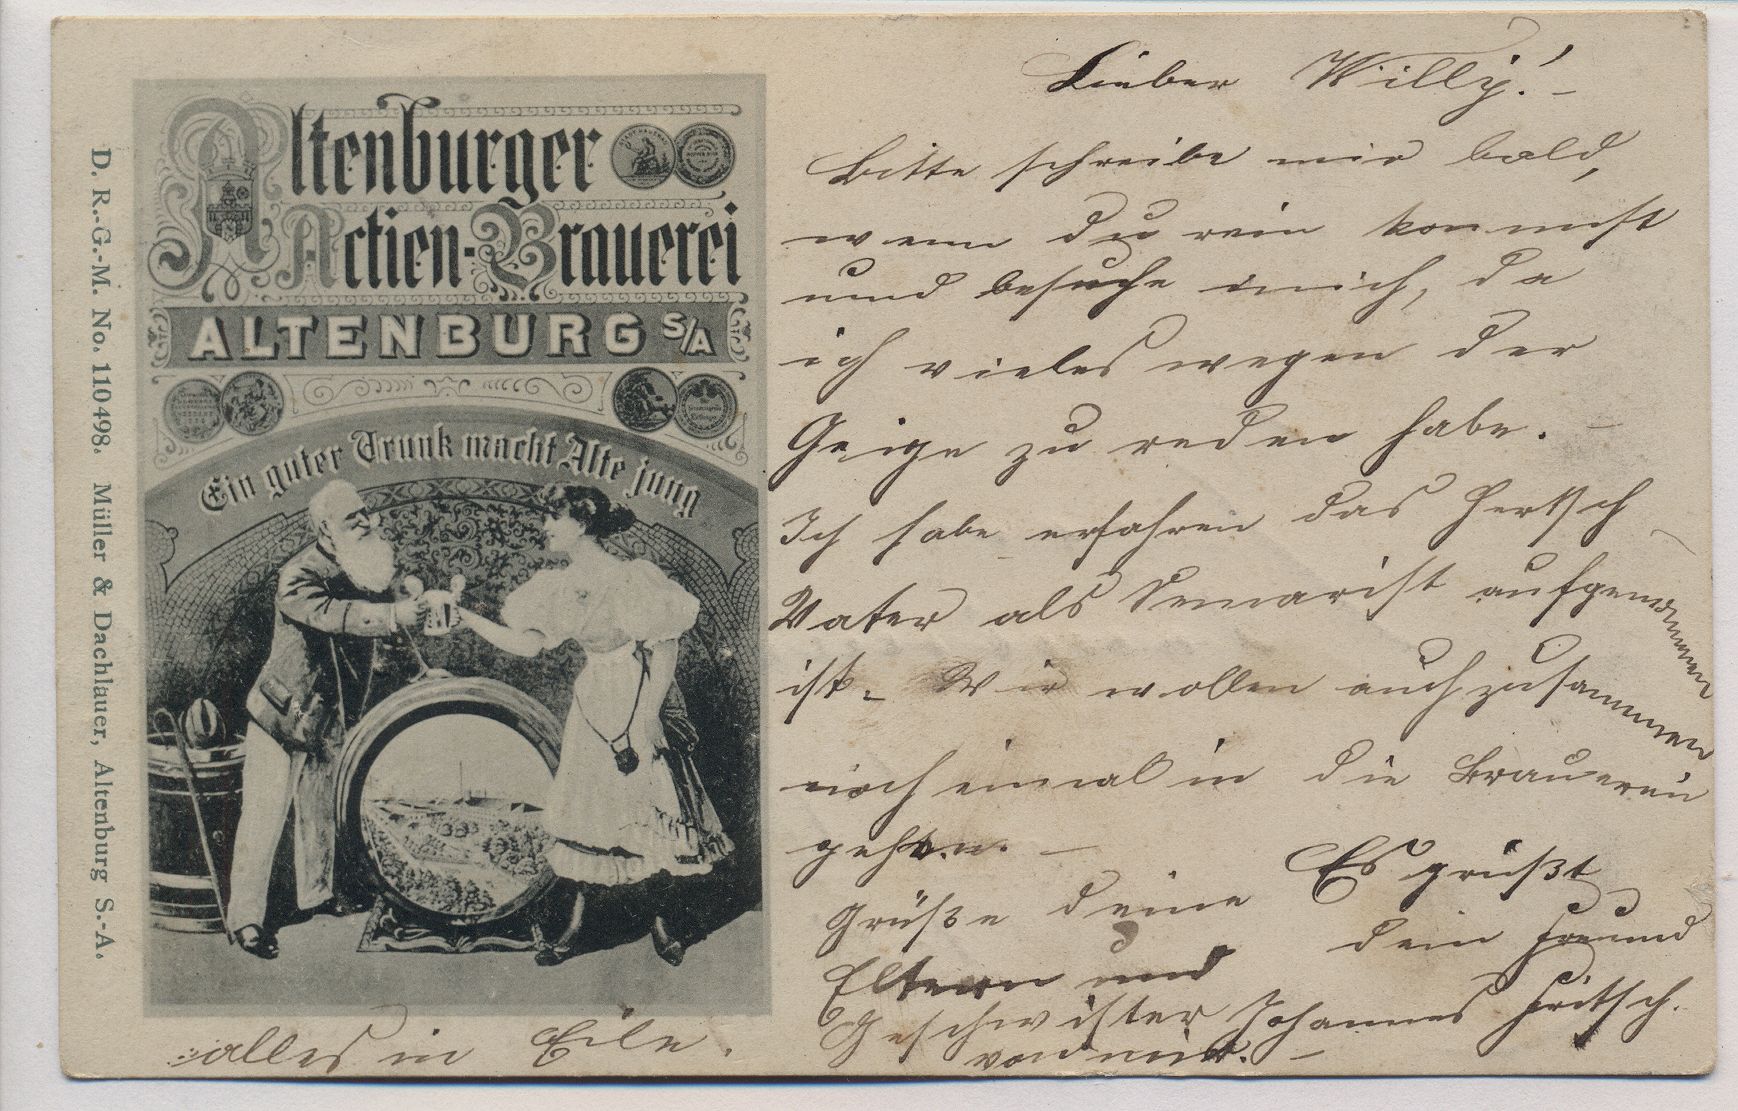 Altenburger
Actien-Brauerei
ALTENBURG S/A
Ein guter Trunk macht Alte jung
D. R.-G.-M. No. 110498. Müller & Dachlauer, Altenburg S.-A.
Lieber Willy! –
Bitte schreibe mir bald,
wenn du rein kommst
und besuche mich, da
ich vieles wegen der
Geige zu reden habe. –
Ich habe erfahren das Hertsch
Vater als Semarist aufgenommen
ist. Wir wollen auch zusammen
noch einmal in die Brauerei
gehen. –
Grüße deine
Eltern und
Geschwister
von mir. –
Es grüßt
dein Freund
Johannes Fritsch.
alles in Eile.